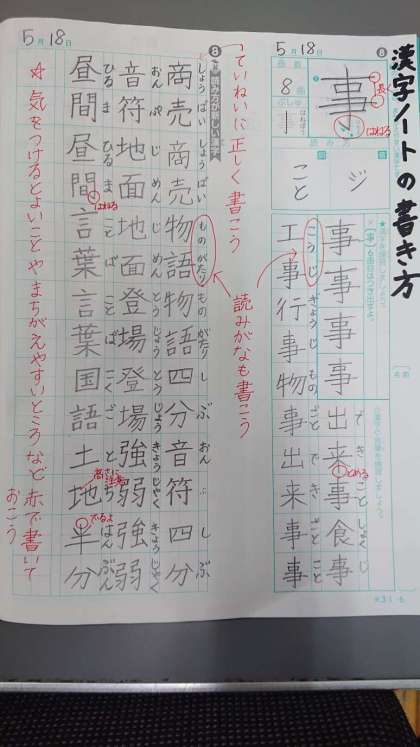 漢字ノートの書き方
5月18日
8
事
長く
はねる
8画
事
ジ
こと
事事事事
出来事食事
で き ごと しょく じ
工事行事物事出来事事
こう じ ぎょう じ もの ごと で き ごと こと
とめる
「ていねいに正しく書こう
読みがなも書こう
5月18日
8
商売商売物語物語四分音符四分
しょう ばい しょう ばい もの がたり もの がたり し ぶ おん ぷ し ぶ
音符地面地面登場登場強弱強弱
おん ぷ じ めん じ めん とう じょう とう じょう きょう じゃく きょう じゃく
昼間昼間言葉言葉国語土地半分
ひる ま ひる ま こと ば こと ば こく ご と ち はん ぶん
はねる
高さに注意
でるよ
☆気をつけるとよいことやまちがえやすいところなど赤で書いて
おこう